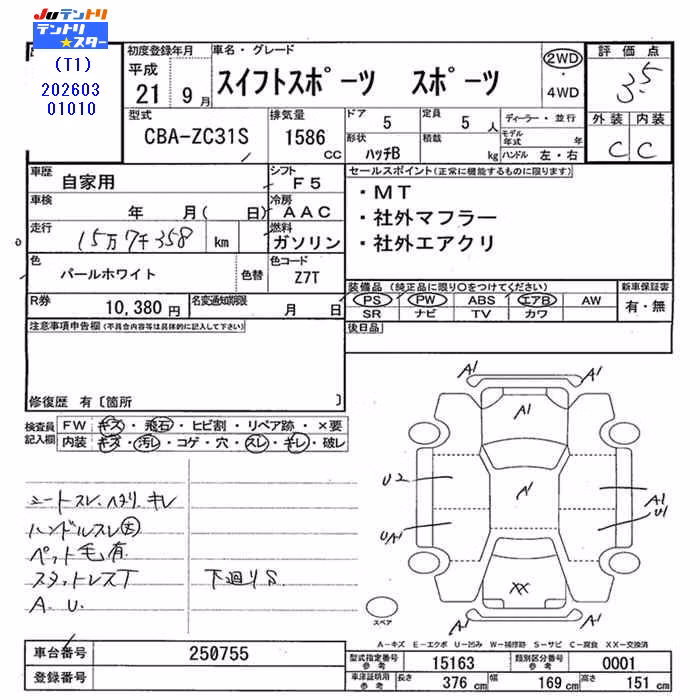 JUテントリ
テントリ
★スター
(T1)
202603
01010
初度登録年月
平成
21 9月
車名・グレード
スイフトスポーツ スポーツ
2WD
・
4WD
評価点
3.5
外装 内装
C C
型式
CBA-ZC31S
排気量
1586
CC
ドア
5
定員
5 人
形状
ハッチB
積載
kg
ディーラー・並行
モデル年式 年
ハンドル 左・右
車歴
自家用
シフト
F5
車検
年 月( 日)
冷房
AAC
走行
15万7千358 km
燃料
ガソリン
色
パールホワイト
色替
色コード
Z7T
R券
10,380 円
名変通知期限
月 日
セールスポイント(正常に機能するものに限ります)
・MT
・社外マフラー
・社外エアクリ
装備品(純正品に限り○をつけてください)
PS PW ABS エアB AW
SR ナビ TV カワ
新車保証書
有・無
後日品
注意事項申告欄(不具合内容等は具体的に記入して下さい)
修復歴 有〔箇所 〕
検査員
記入欄
FW キズ・飛石・ヒビ割・リペア跡・×要
内装 キズ・汚レ・コゲ・穴・スレ・キレ・破レ
シートスレ、ヘタリ、キレ
ハンドルスレ(大)
ペット毛有
スタットレスT
A. U.
下廻りS
A1 A1
A1
U2
A1
A1
U1
U/A1
XX
A1 A1
スペア
A-キズ E-エクボ U-凹み W-補修跡 S-サビ C-腐食 XX-交換済
車台番号
250755
登録番号
型式指定番号
参考
15163
類別区分番号
参考
0001
車庫証明用
参考
長さ
376 cm
幅
169 cm
高さ
151 cm